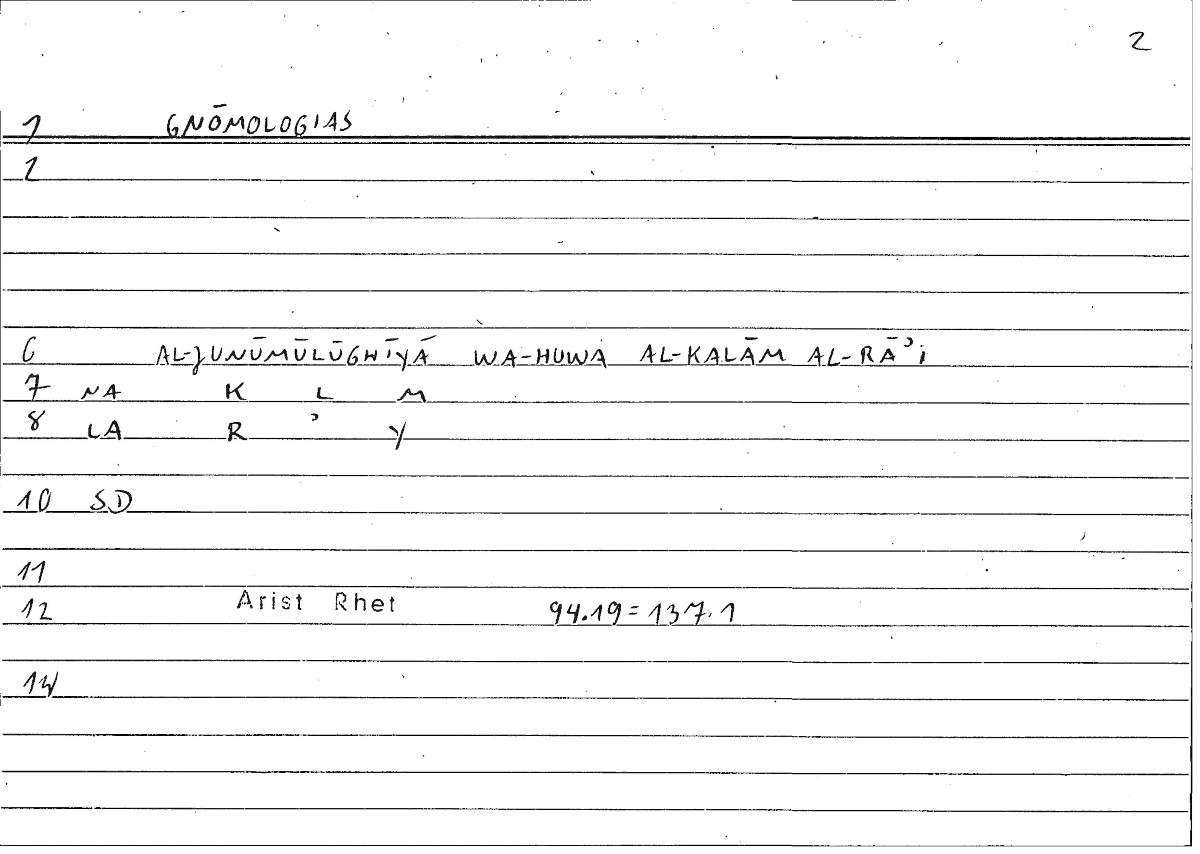 2
1 GNŌMOLOGIAS
2
6 AL-JUNŪMŪLŪGHĪYĀ WA-HUWA AL-KALĀM AL-RĀʾi
7 NA K L M
8 LA R ʾ Y
10 SD
11
12 Arist Rhet 94.19=137.1
14